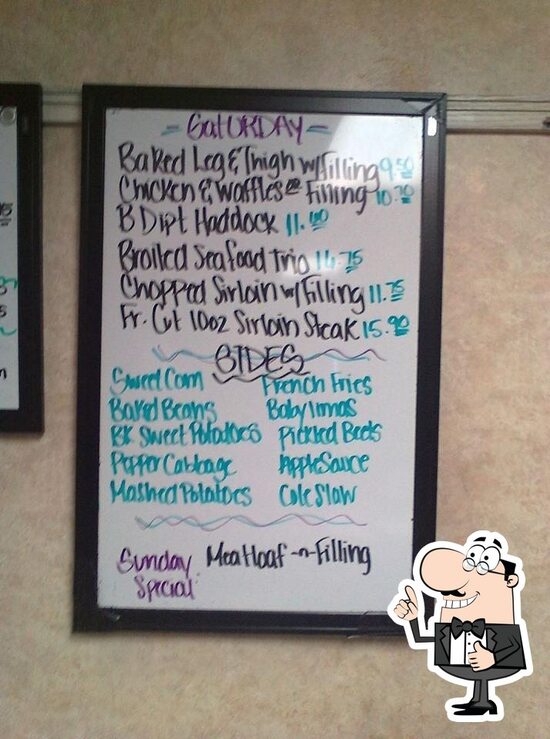 - SatURDAY -
Baked Leg & Thigh w/Filling 9.50
Chicken & Waffles or Filling 10.70
B Dipt Haddock 11.
Broiled Seafood Trio 14.75
Chopped Sirloin w/Filling 11.75
Fr. Cut 10oz Sirloin Steak 15.90
SIDES
Sweet Corn French Fries
Baked Beans Baby limas
BK Sweet Potatoes Pickled Beets
Pepper Cabbage AppleSauce
Mashed Potatoes Cole Slow
Sunday Special Meatloaf -n- Filling